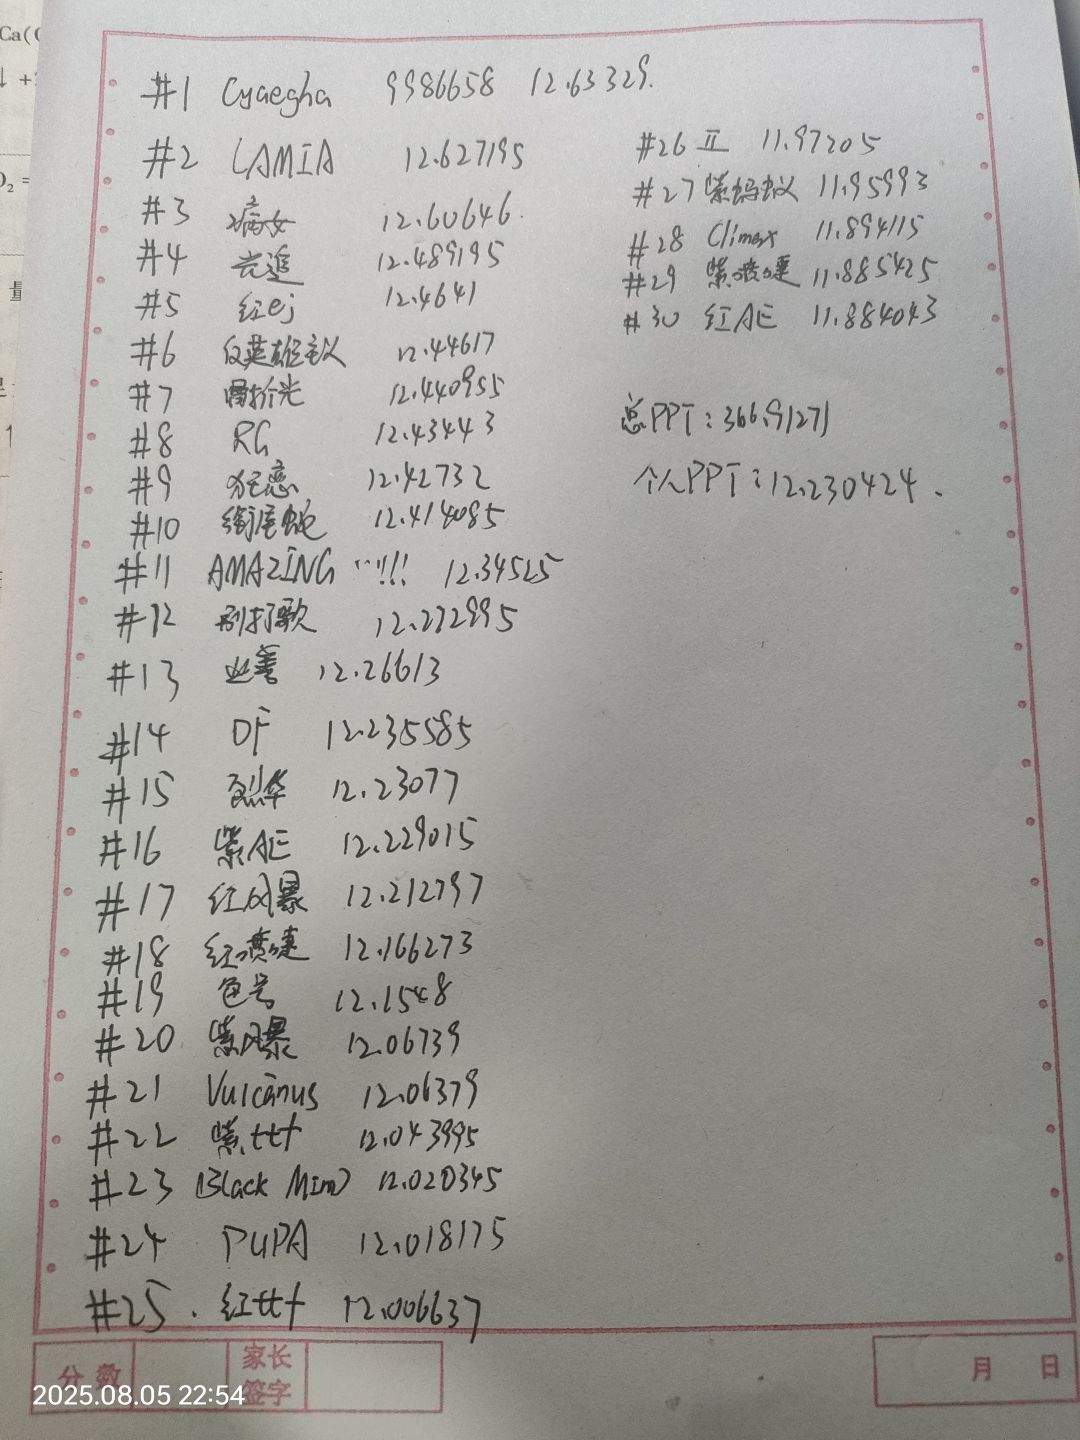 Ca(
↓ +
O₂ =
量
#1 Cyaegha 9986658 12.63329.
#2 LAMIA 12.627195
#3 病女 12.60646.
#4 光追 12.489195
#5 红ej 12.4641
#6 反英雄主义 12.44617
#7 12.440955
#8 RG 12.43443
#9 狂恋 12.42732
#10 衔尾蛇 12.414085
#11 AMAZING …!!!! 12.34525
#12 别打歌 12.272995
#13 业善 12.26613
#14 DF 12.235585
#15 烈华 12.23077
#16 紫AE 12.229015
#17 红风暴 12.212797
#18 红喷嚏 12.166273
#19 色号 12.1548
#20 紫风暴 12.06739
#21 Vulcanus 12.06379
#22 紫ttt 12.043995
#23 Black Mind 12.020345
#24 PUPA 12.018175
#25. 红ttt 12.006637
#26 II 11.97205
#27 紫蚂蚁 11.95993
#28 Climax 11.894115
#29 紫喷嚏 11.885425
#30 红AE 11.884043
总PPT:366.91271
个人PPT:12.230424.
分数
家长
签字
月 日
2025.08.05 22:54